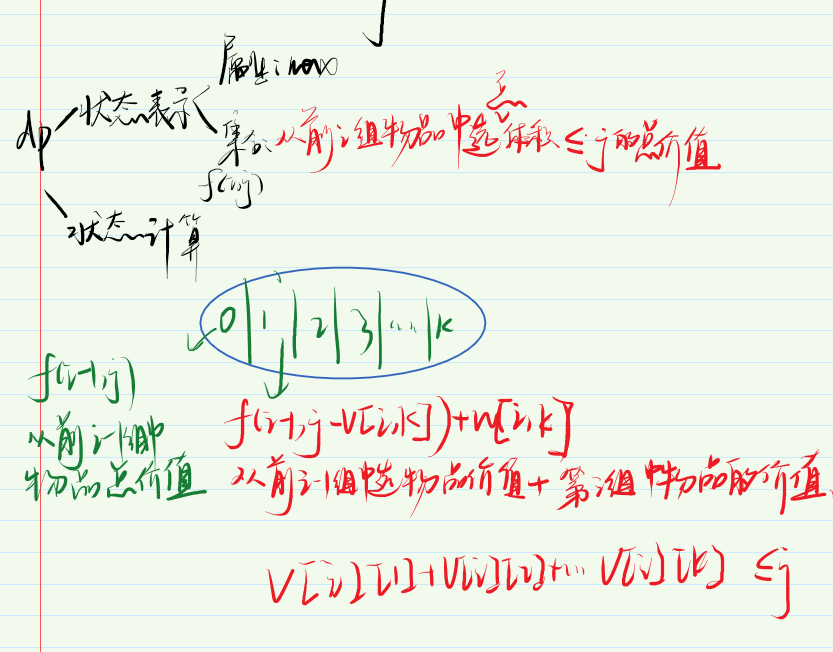 属性:max
dp 状态表示
集合 从前i组物品中选总体积≤j的总价值
f(i,j)
状态计算
0|1|2|3|...|k
f(i-1,j)
从前i-1组中
物品总价值
f(i-1,j-V[i,k])+w[i,k]
从前i-1组中选物品价值+第i组中物品的价值
V[i][1]+V[i][2]+... V[i][k] ≤j